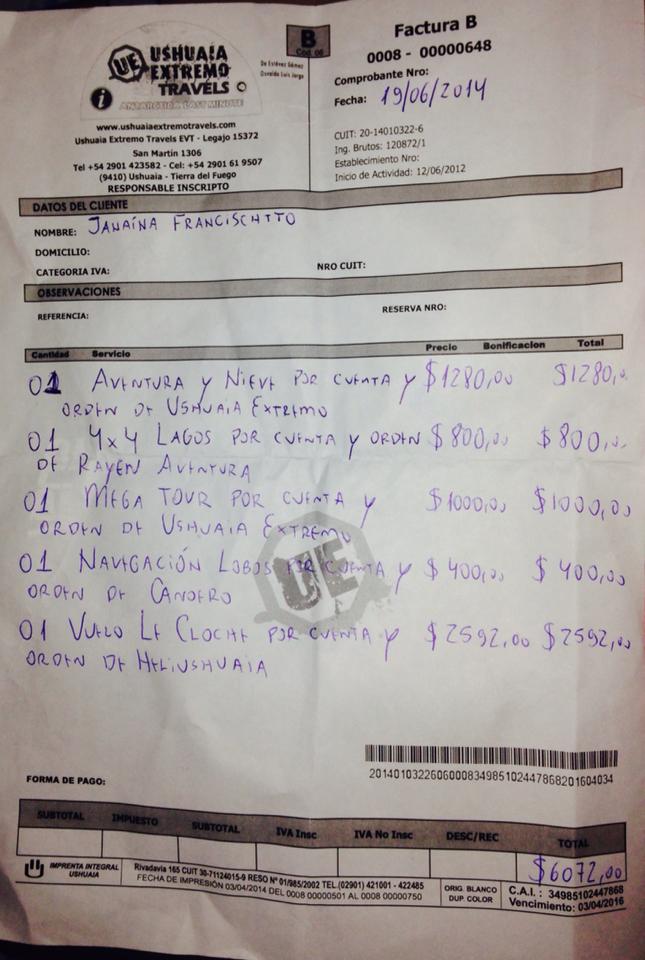 USHUAIA
EXTREMO
TRAVELS
ANTARCTICA LAST MINUTE
www.ushuaiaextremotravels.com
Ushuaia Extremo Travels EVT - Legajo 15372
San Martin 1306
Tel +54 2901 423582 - Cel: +54 2901 61 9507
(9410) Ushuaia - Tierra del Fuego
RESPONSABLE INSCRIPTO
B
Cod. 06
De Estévez Gómez
Osvaldo Luis Jorge
Factura B
0008 - 00000648
Comprobante Nro:
Fecha: 19/06/2014
CUIT: 20-14010322-6
Ing. Brutos: 120872/1
Establecimiento Nro:
Inicio de Actividad: 12/06/2012
DATOS DEL CLIENTE
NOMBRE: JANAÍNA FRANCISCHTTO
DOMICILIO:
CATEGORIA IVA: NRO CUIT:
OBSERVACIONES
REFERENCIA: RESERVA NRO:
Cantidad Servicio Precio Bonificacion Total
01 AVENTURA Y NIEVE POR CUENTA Y $1280,00 $1280,00
ORDEN DE USHUAIA EXTREMO
01 4x4 LAGOS POR CUENTA Y ORDEN $800,00 $800,00
DE RAYEN AVENTURA
01 MEGA TOUR POR CUENTA Y $1000,00 $1000,00
ORDEN DE USHUAIA EXTREMO
UE
01 NAVEGACIÓN LOBOS POR CUENTA Y $400,00 $400,00
ORDEN DE CANOERO
01 VUELO LE CLOCHE POR CUENTA Y $2592,00 $2592,00
ORDEN DE HELIUSHUAIA
2014010322606000834985102447868201604034
FORMA DE PAGO:
SUBTOTAL IMPUESTO SUBTOTAL IVA Insc IVA No Insc DESC/REC TOTAL
$6072,00
IMPRENTA INTEGRAL
USHUAIA
Rivadavia 165 CUIT 30-71124015-9 RESO Nº 01/985/2002 TEL.(02901) 421001 - 422485
FECHA DE IMPRESIÓN 03/04/2014 DEL 0008 00000501 AL 0008 00000750
ORIG. BLANCO
DUP. COLOR
C.A.I.: 34985102447868
Vencimiento: 03/04/2016